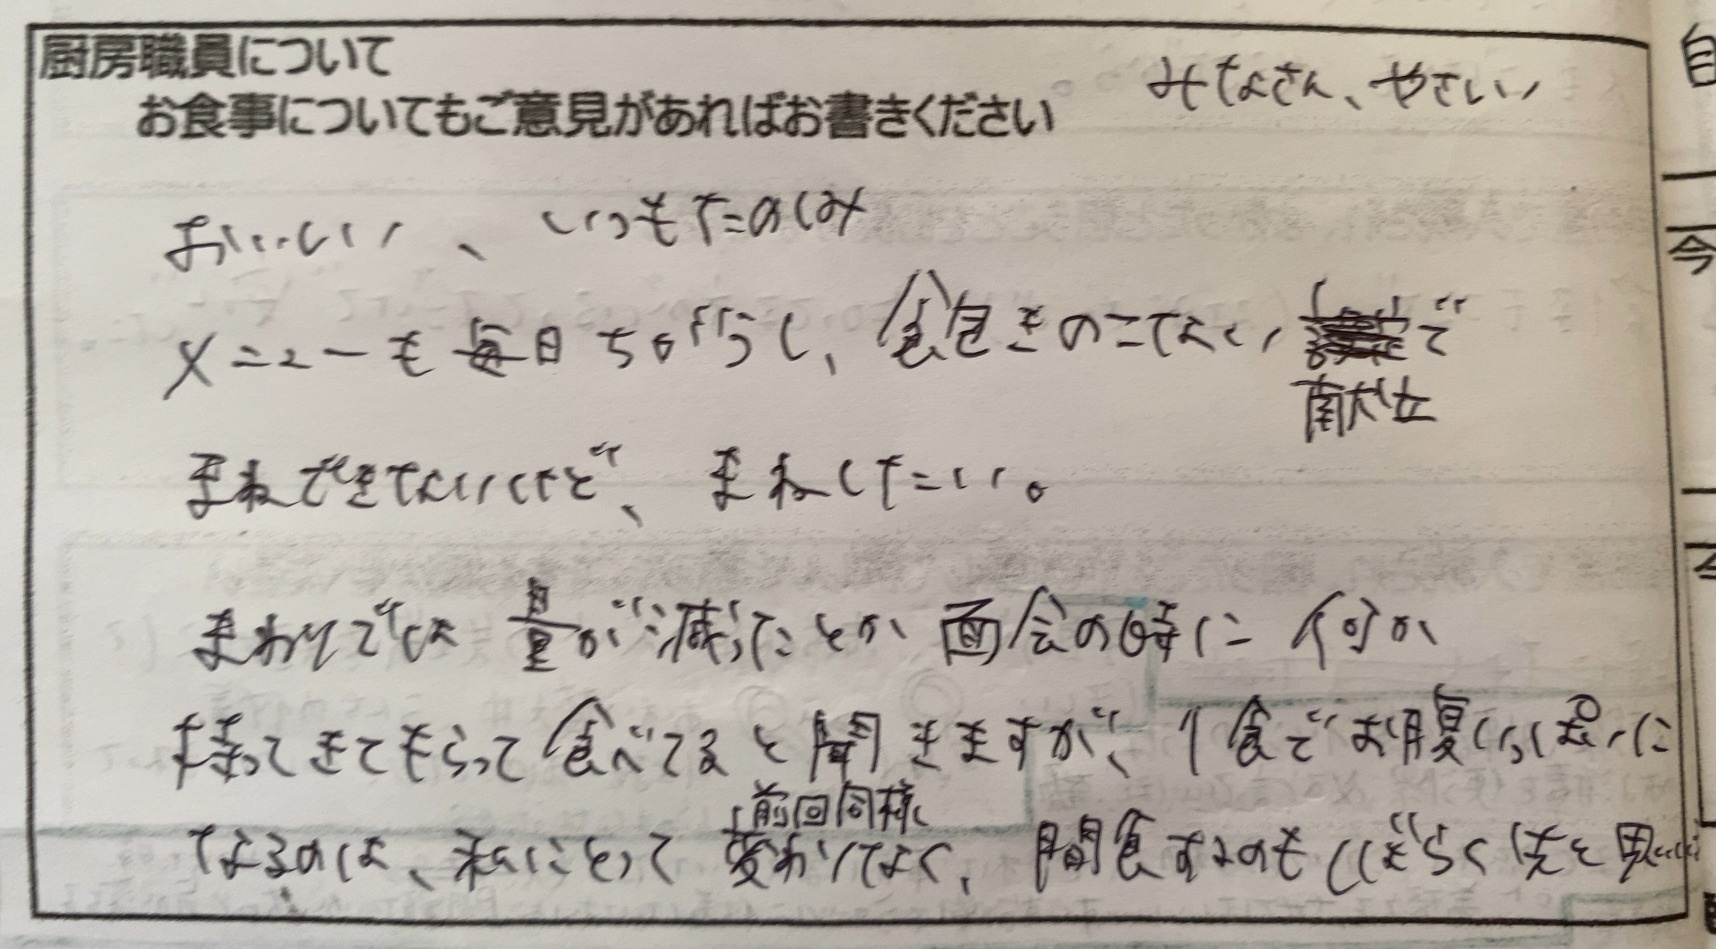 厨房職員について
お食事についてもご意見があればお書きください
みなさん、やさしい
おいしい、いつもたのしみ
メニューも毎日ちがうし、飽きのこない で
献立
まねできないけど、まねしたい。
まわりでは量が減ったとか面会の時に何か
持ってきてもらって食べてると聞きますが、1食でお腹いっぱいに
前回同様
なるのは、私にとって変わりなく、間食するのもしばらく先と思い
自
今